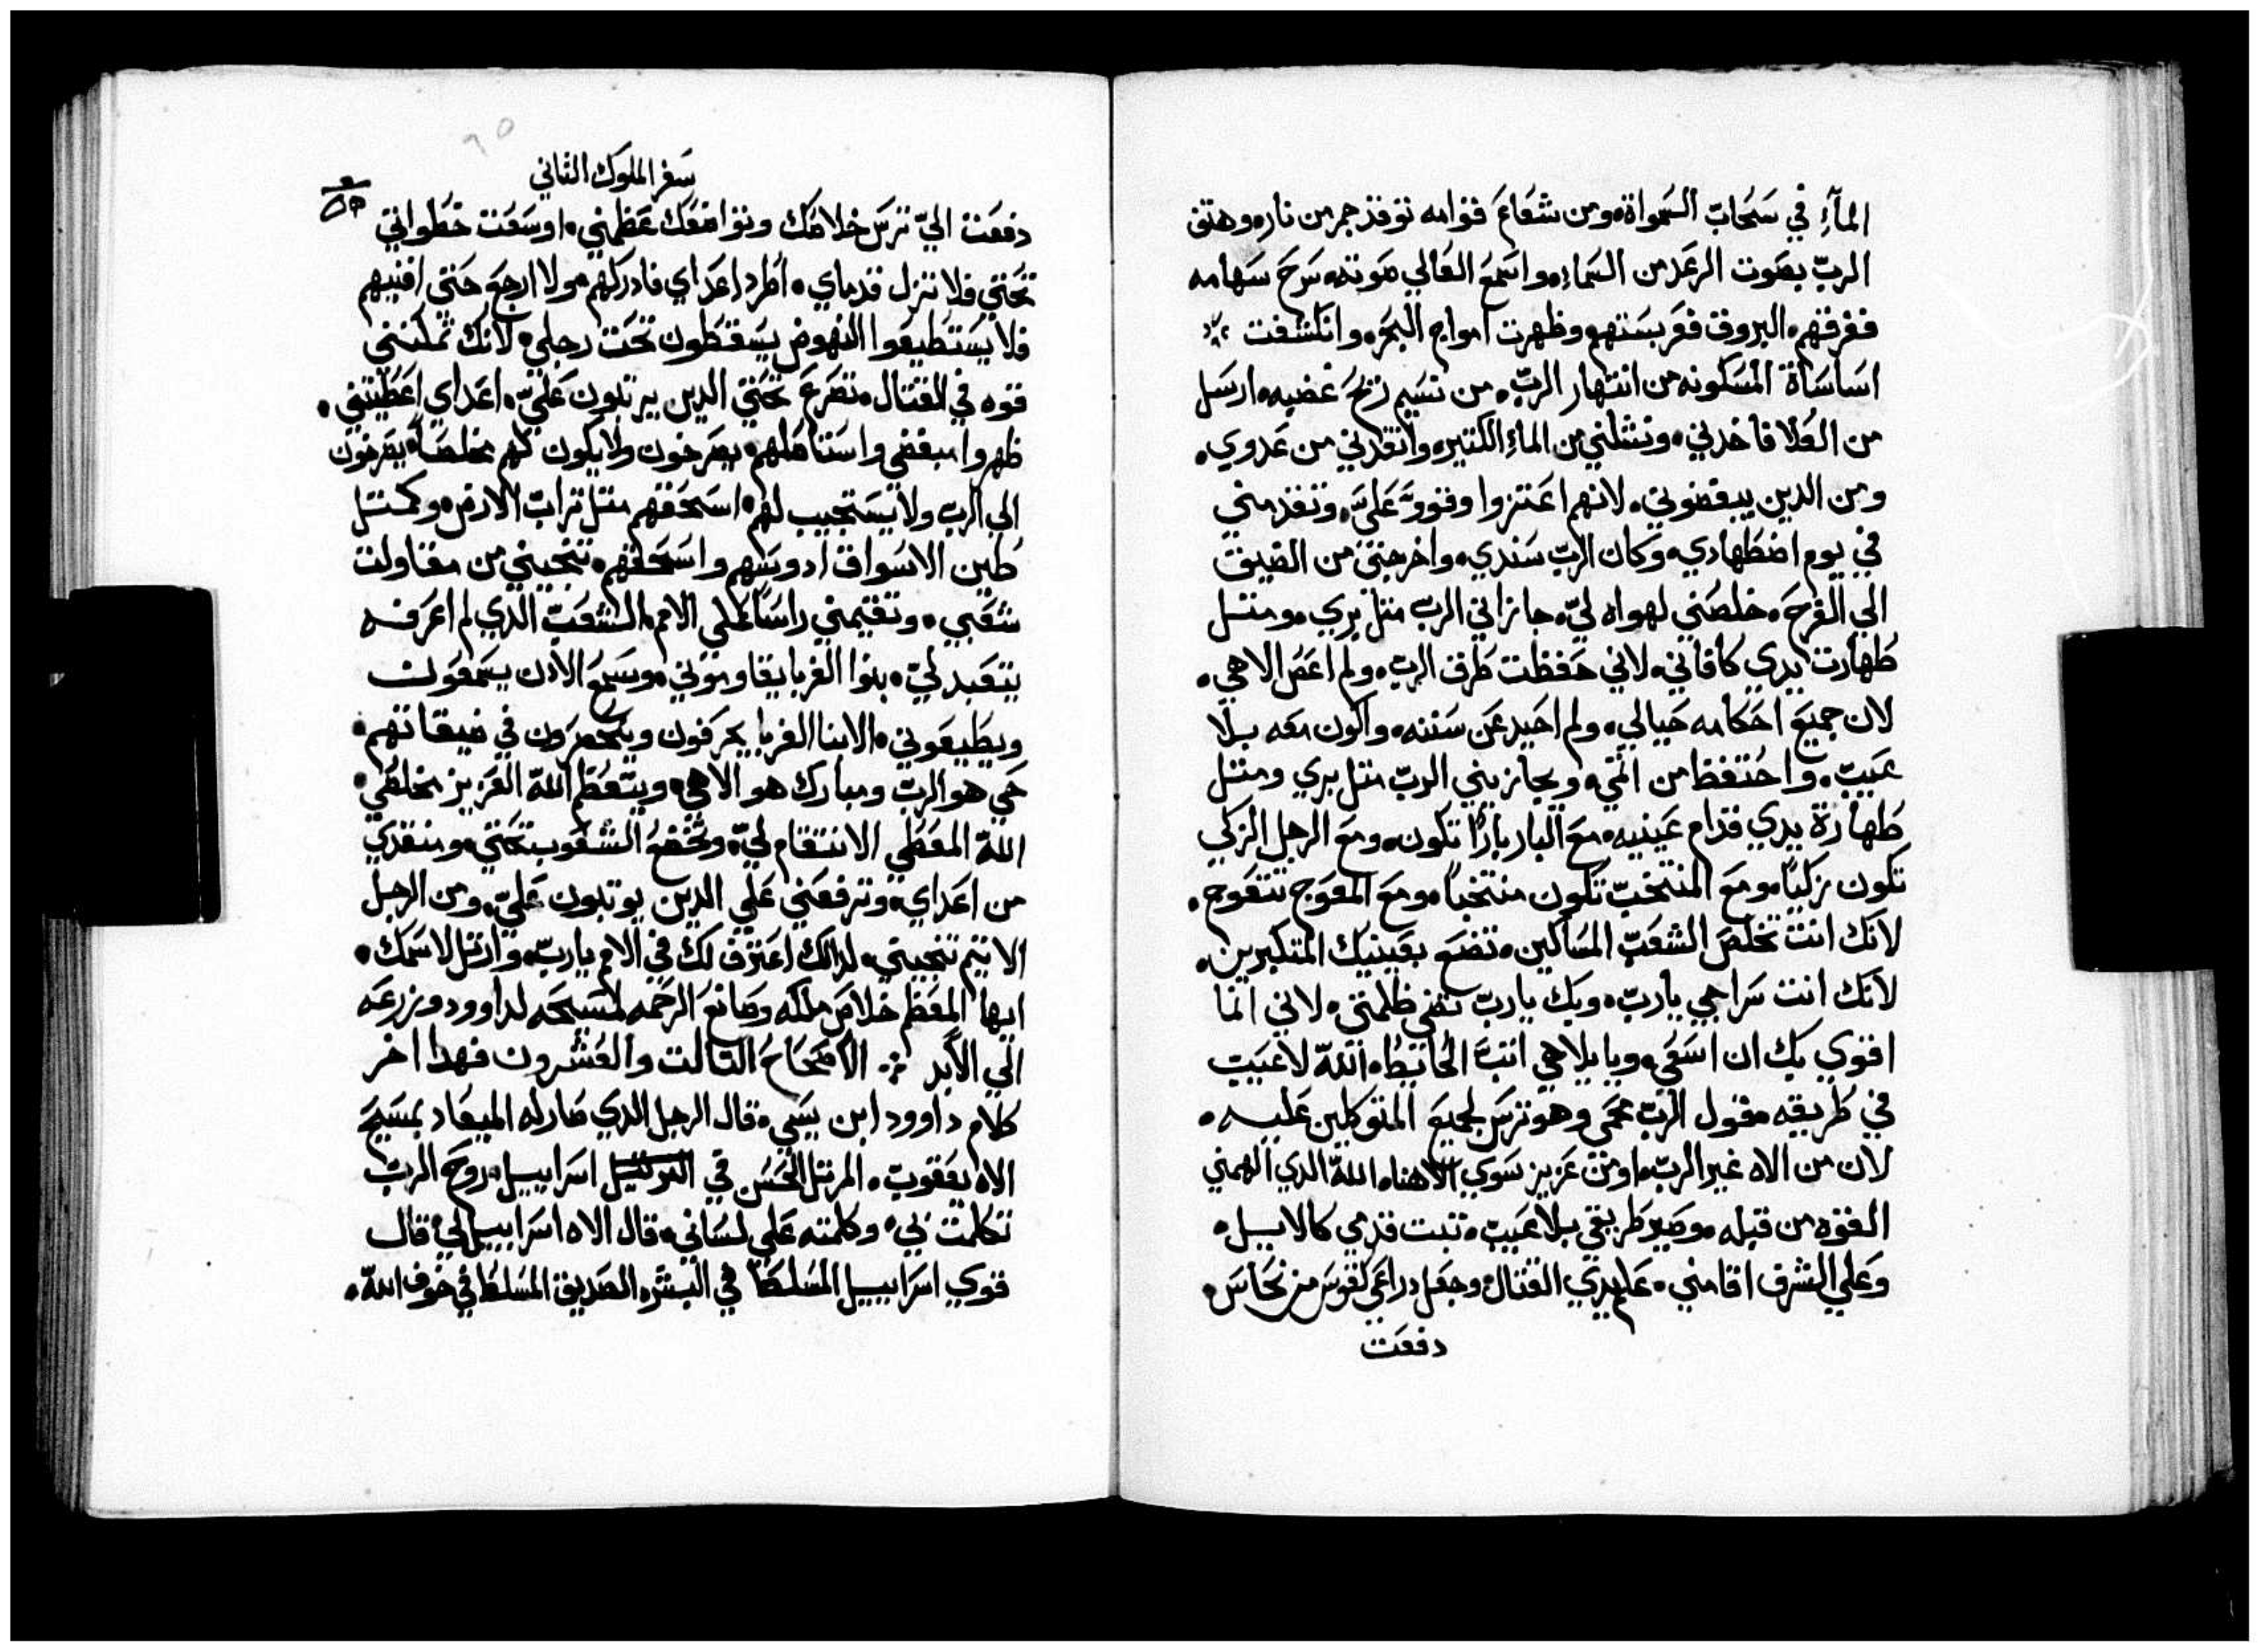 المآءِ في سَحَابّ السَمواة، ومن شعَاعَ قوامه توقد جمر من نار، وهتف
الربّ بصَوت الرعَد من السَماءِ، واسَمع العَالي صَوته، سَرح سَهامه
ففرقهم، البروق فقربستهم، وظهرت امواج البحَر، وانكشفت
اسَاسَاة المَسكونه من انتهار الربّ، من نسَيم ريحَ غضبه، ارسَل
من العَلا فاخدني، ونشلني من الماءِ الكتير، وانقدني من عَدوي،
ومن الدين يبغضوني، لانهم اعَتزوا وقووّ عَليّ، وتقدمني
في يوم اضطهادي، وكان الربّ سَندي، واخرجني من الضيق
الي الفرحَ، خلصَني لهواه ليّ، جازاني الربّ متل بري، ومتل
طهارت يدي كافاني، لاني حَفظت طرق الربّ، ولم اعَصَ الاهي،
لان جميعَ احَكامه حَيالي، ولم احَيد عَن سَننه، واكون معَه بلا
عَيبّ، واحَتفظ من اتمي، ويجازيني الربّ متل بري ومتل
طهارة يدي قدام عَينيه، معَ البار بارًا تكون، ومعَ الرجل الزكي
تكون زكيًا، ومعَ المنتخبّ تكون منتخبًا، ومعَ المعَوج تتعَوج،
لانك انت تخلصَ الشعَبّ المسَاكين، تضعَ بعَينيك المتكبرين،
لانك انت سَراجي ياربّ، وبك ياربّ تضي ظلمتي، لاني انما
اقوي بك ان اسَعَي، وبايلاهي انبّ الحَايط، اللهّ لاعَيب
في طريقه، مقول الربّ محَمي وهو ترسَ لجميعَ المتوكلين عَليه،
لان من الاه غير الربّ، او من عَزيز سَوي الاهنا، اللهّ الدي الهمني
القوه من قبله، وصَير طريقي بلا عَيبّ، تبت قدمي كالايل،
وعَلي الشرف اقامني، عَلم يدي القتال، وجعَل دراعَي لقوسَ من نحَاسَ،
دفعَت
سَفر الملوك التاني
دفعَت اليّ ترسَ خلاصَك وتواضعَك عَظمني، اوسَعَت خطواتي
تحَتي فلا تزل قدماي، اطرد اعَداي فادركهم، ولا ارجعَ حَتي افنيهم
فلا يسَتطيعَوا النهوض يسَقطون تحَت رجلي، لانك تملتني
قوه في القتال، تصَرعَ تحَتي الدين يرتلون عَليّ، اعَداي اعَطيتني،
ظهروا مبغضي واستاصَلهم، يصَرخون ولا يكون لهم مخلصَاً، يصَرخون
الي الربّ ولا يسَتجيب لهم، اسَحَقهم متل ترابّ الارض، وكمتل
طين الاسَواق ادوسَهم واسَحَقهم، تنجيني من مقاولت
شعَبي، وتقيمني راسَاً عَلي الامم، الشعَبّ الدي لم اعَرفه
يتعَبد ليّ، بنوا الغربا يقاوموني، وسَمعَ الادن يسَمعَون
ويطيعَوني، الابنا الغربا يحَرفون وينحَصَرون في ضيقاتهم،
حَي هو الربّ ومبارك هو الاهي، ويتعَظم اللهّ العَزيز مخلصَي،
اللهّ المعَطي الانتقام ليّ، وتخضعَ الشعَوب تحَتي، ومنقدي
من اعَداي، وترفعَني عَلي الدين يوتبون عَليّ، ومن الرجل
الاتيم تنجيني، لدالك اعَترف لك في الامم ياربّ، وارتل لاسَمك،
ايها المعَظم خلاصَ ملكه وصَانعَ الرحَمه لمسَيحَه لداوود وزرعَه
الي الابد ⁘ الاصَحَاحَ التالت والعَشرون فهدا اخر
كلام داوود ابن يسَي، قال الرجل الدي صَار له الميعَاد بمسَيحَ
الاه يعَقوبّ، المرتل الحَسَن في اسَراييل، روحَ الربّ
تكلمت بي، وكلمته عَلي لسَاني، قال الاه اسَراييل لي، قال
قوي اسَراييل المسَلط في البشر، الصَديق المسَلط في خوف اللهّ،